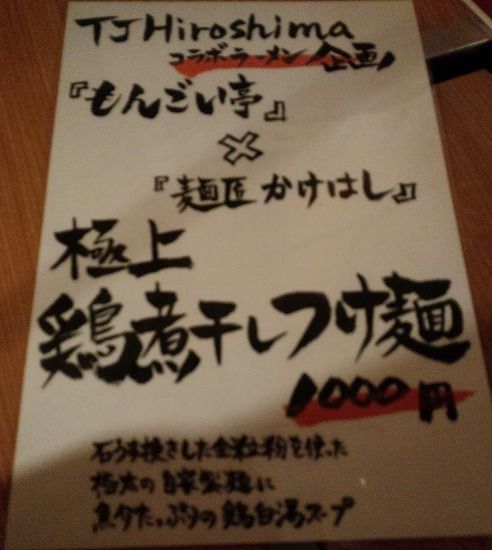 TJ Hiroshima
コラボラーメン企画
『もんごい亭』
×
『麺匠 かけはし』
極上
鶏煮干しつけ麺
1000円
石うす挽きした全粒粉を使った
極太の自家製麺に
魚介たっぷりの鶏白湯スープ